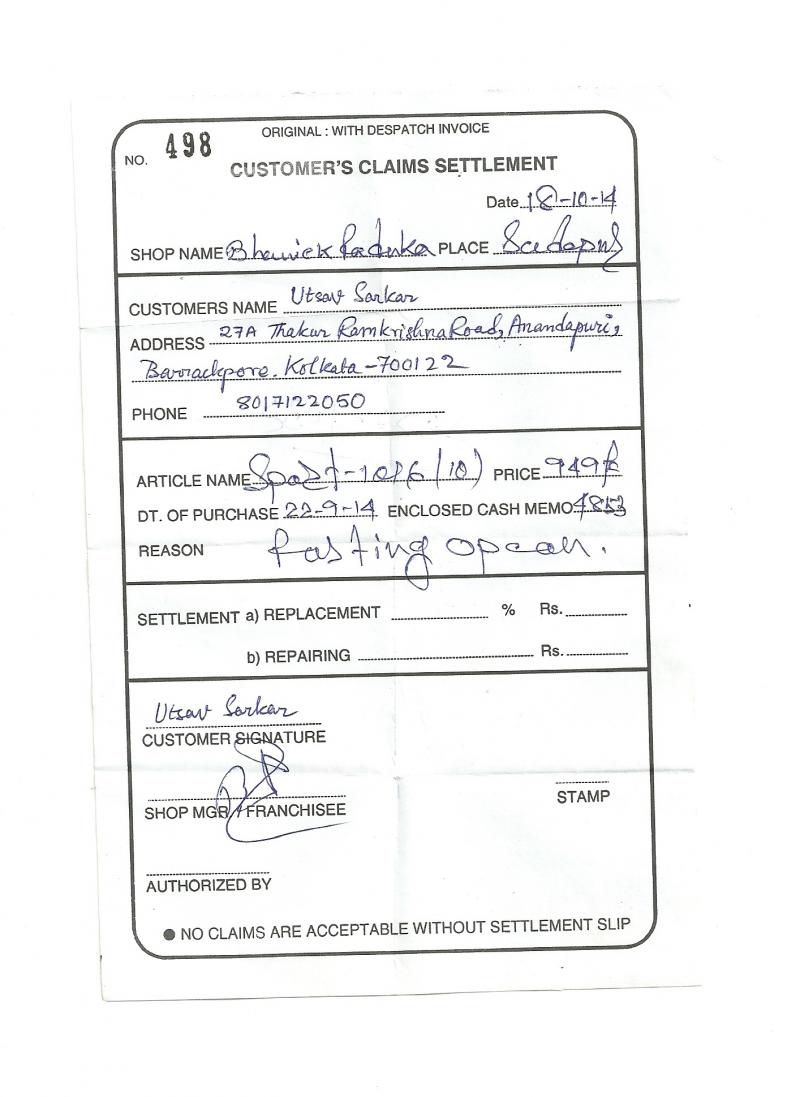 ORIGINAL : WITH DESPATCH INVOICE
NO. 498
CUSTOMER'S CLAIMS SETTLEMENT
Date 18-10-14
SHOP NAME Bhowmick Paduka PLACE
CUSTOMERS NAME Utsav Sarkar
ADDRESS 27A Thakur Ramkrishna Road, Anandapuri,
Barrackpore. Kolkata-700122
PHONE 8017122050
ARTICLE NAME (10) PRICE 949
DT. OF PURCHASE 22-9-14 ENCLOSED CASH MEMO
REASON Pasting
SETTLEMENT a) REPLACEMENT % Rs.
b) REPAIRING Rs.
Utsav Sarkar
CUSTOMER SIGNATURE
SHOP MGR / FRANCHISEE
STAMP
AUTHORIZED BY
● NO CLAIMS ARE ACCEPTABLE WITHOUT SETTLEMENT SLIP